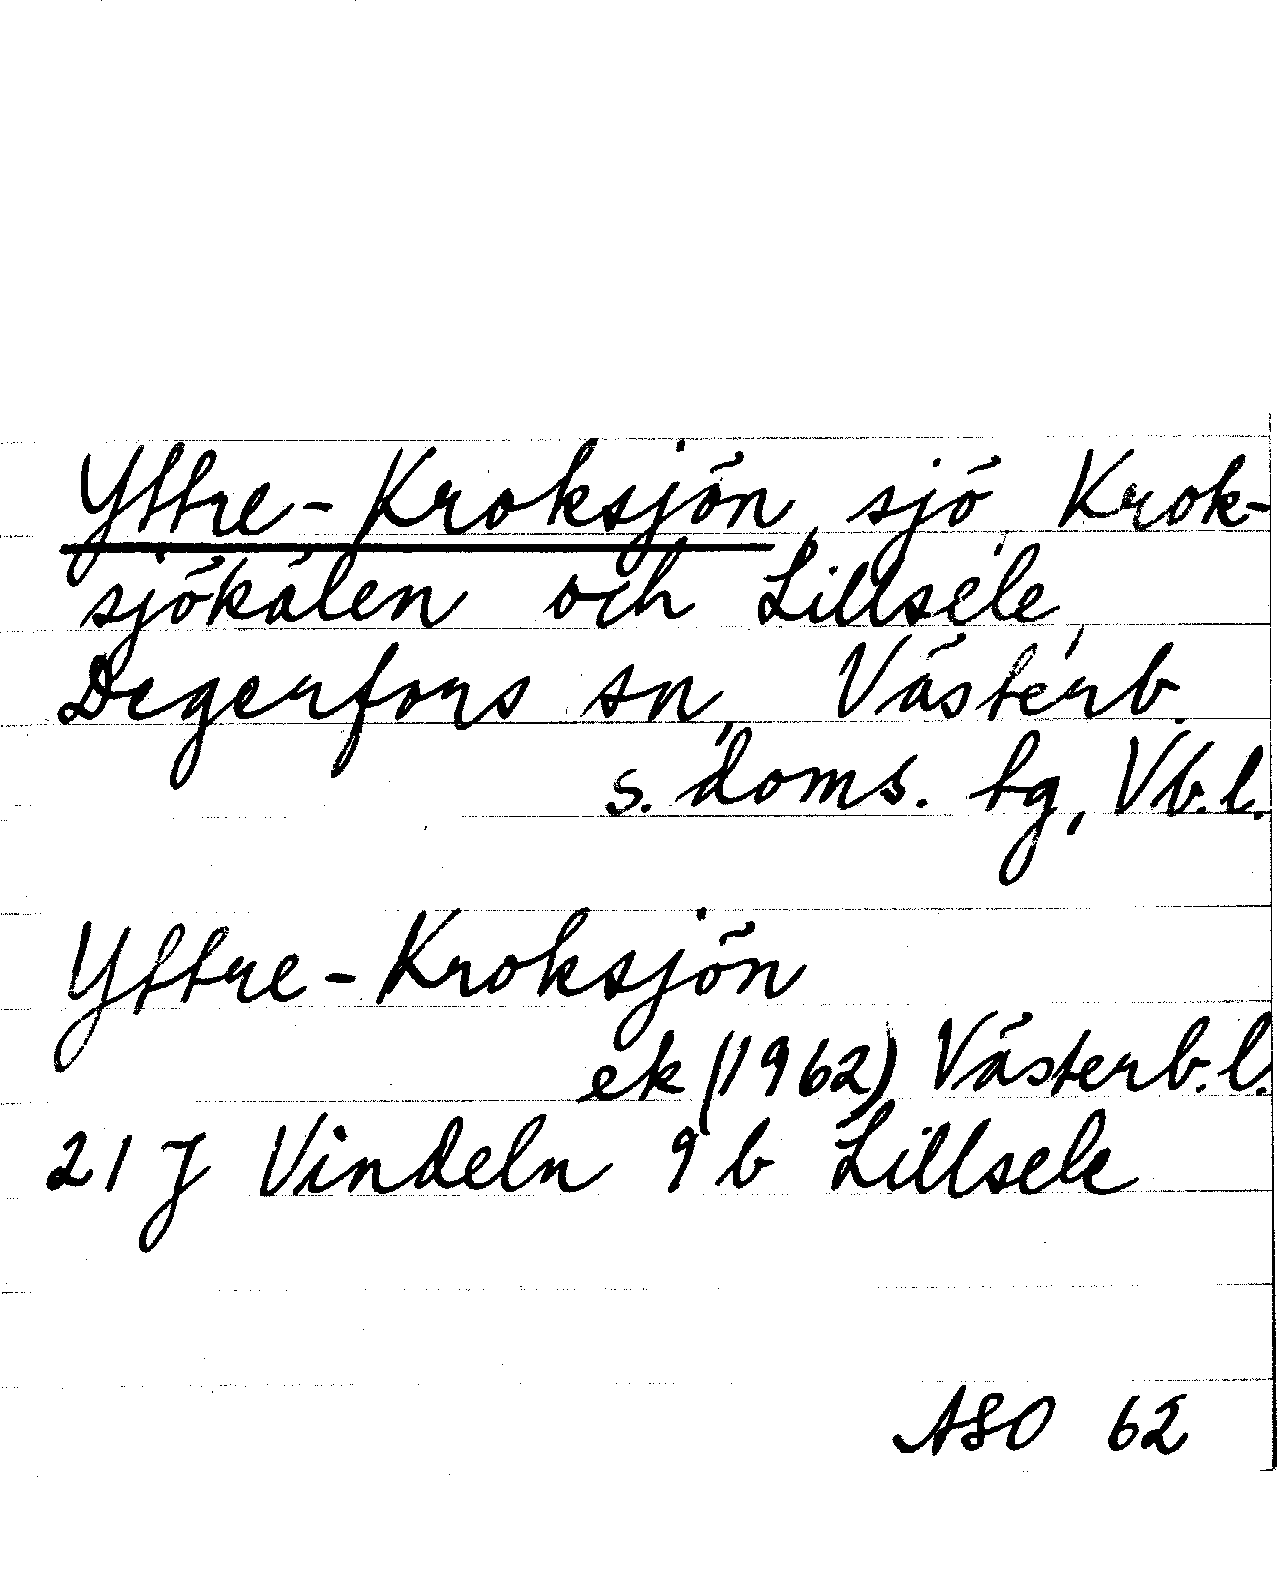 Yttre-Kroksjön, sjö, Krok-
sjökålen och Lillsele,
Degerfors sn, Västerb.
s. doms. tg, Vb. l.
Yttre-Kroksjön
ek (1962) Västerb. l.
21 J Vindeln 9 b Lillsele
ASO 62